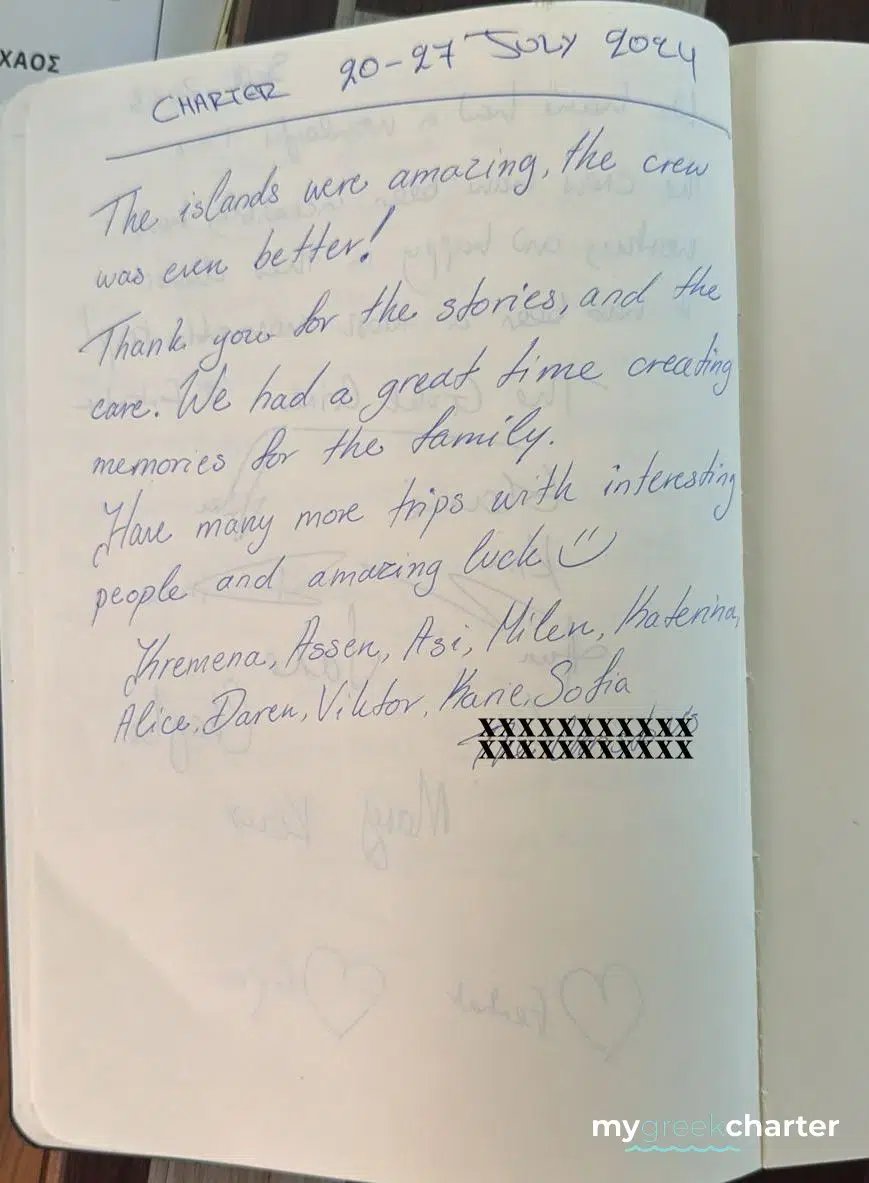 ΧΑΟΣ
CHARTER 20-27 JULY 2024
The islands were amazing, the crew
was even better!
Thank you for the stories, and the
care. We had a great time creating
memories for the family.
Have many more trips with interesting
people and amazing luck
Kremena, Assen, Asi, Milen, Katerina,
Alice, Daren, Viktor, Karie, Sofia
XXXXXXXXXXX
XXXXXXXXXXX
mygreekcharter